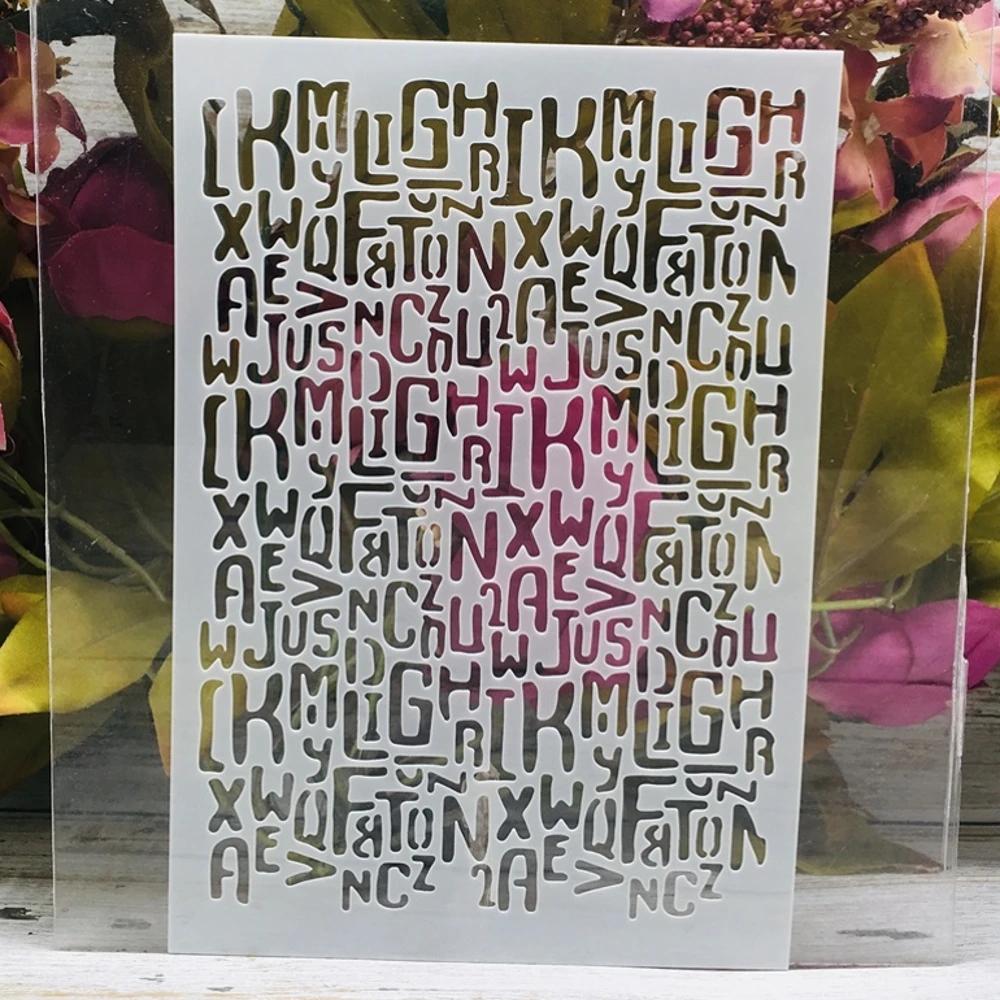 I K M L I G H I K M L I G H
y R y R
X W Q F T O N X W Q F T O N
A E V N C Z 2 A E V N C Z
W J U S D n U W J U S D n U
I K M L I G H I K M L I G H
y R y R
X W Q F T O N X W Q F T O N
A E V N C Z 2 A E V N C Z
W J U S D n U W J U S D n U
I K M L I G H I K M L I G H
y R y R
X W Q F T O N X W Q F T O N
A E V N C Z 2 A E V N C Z